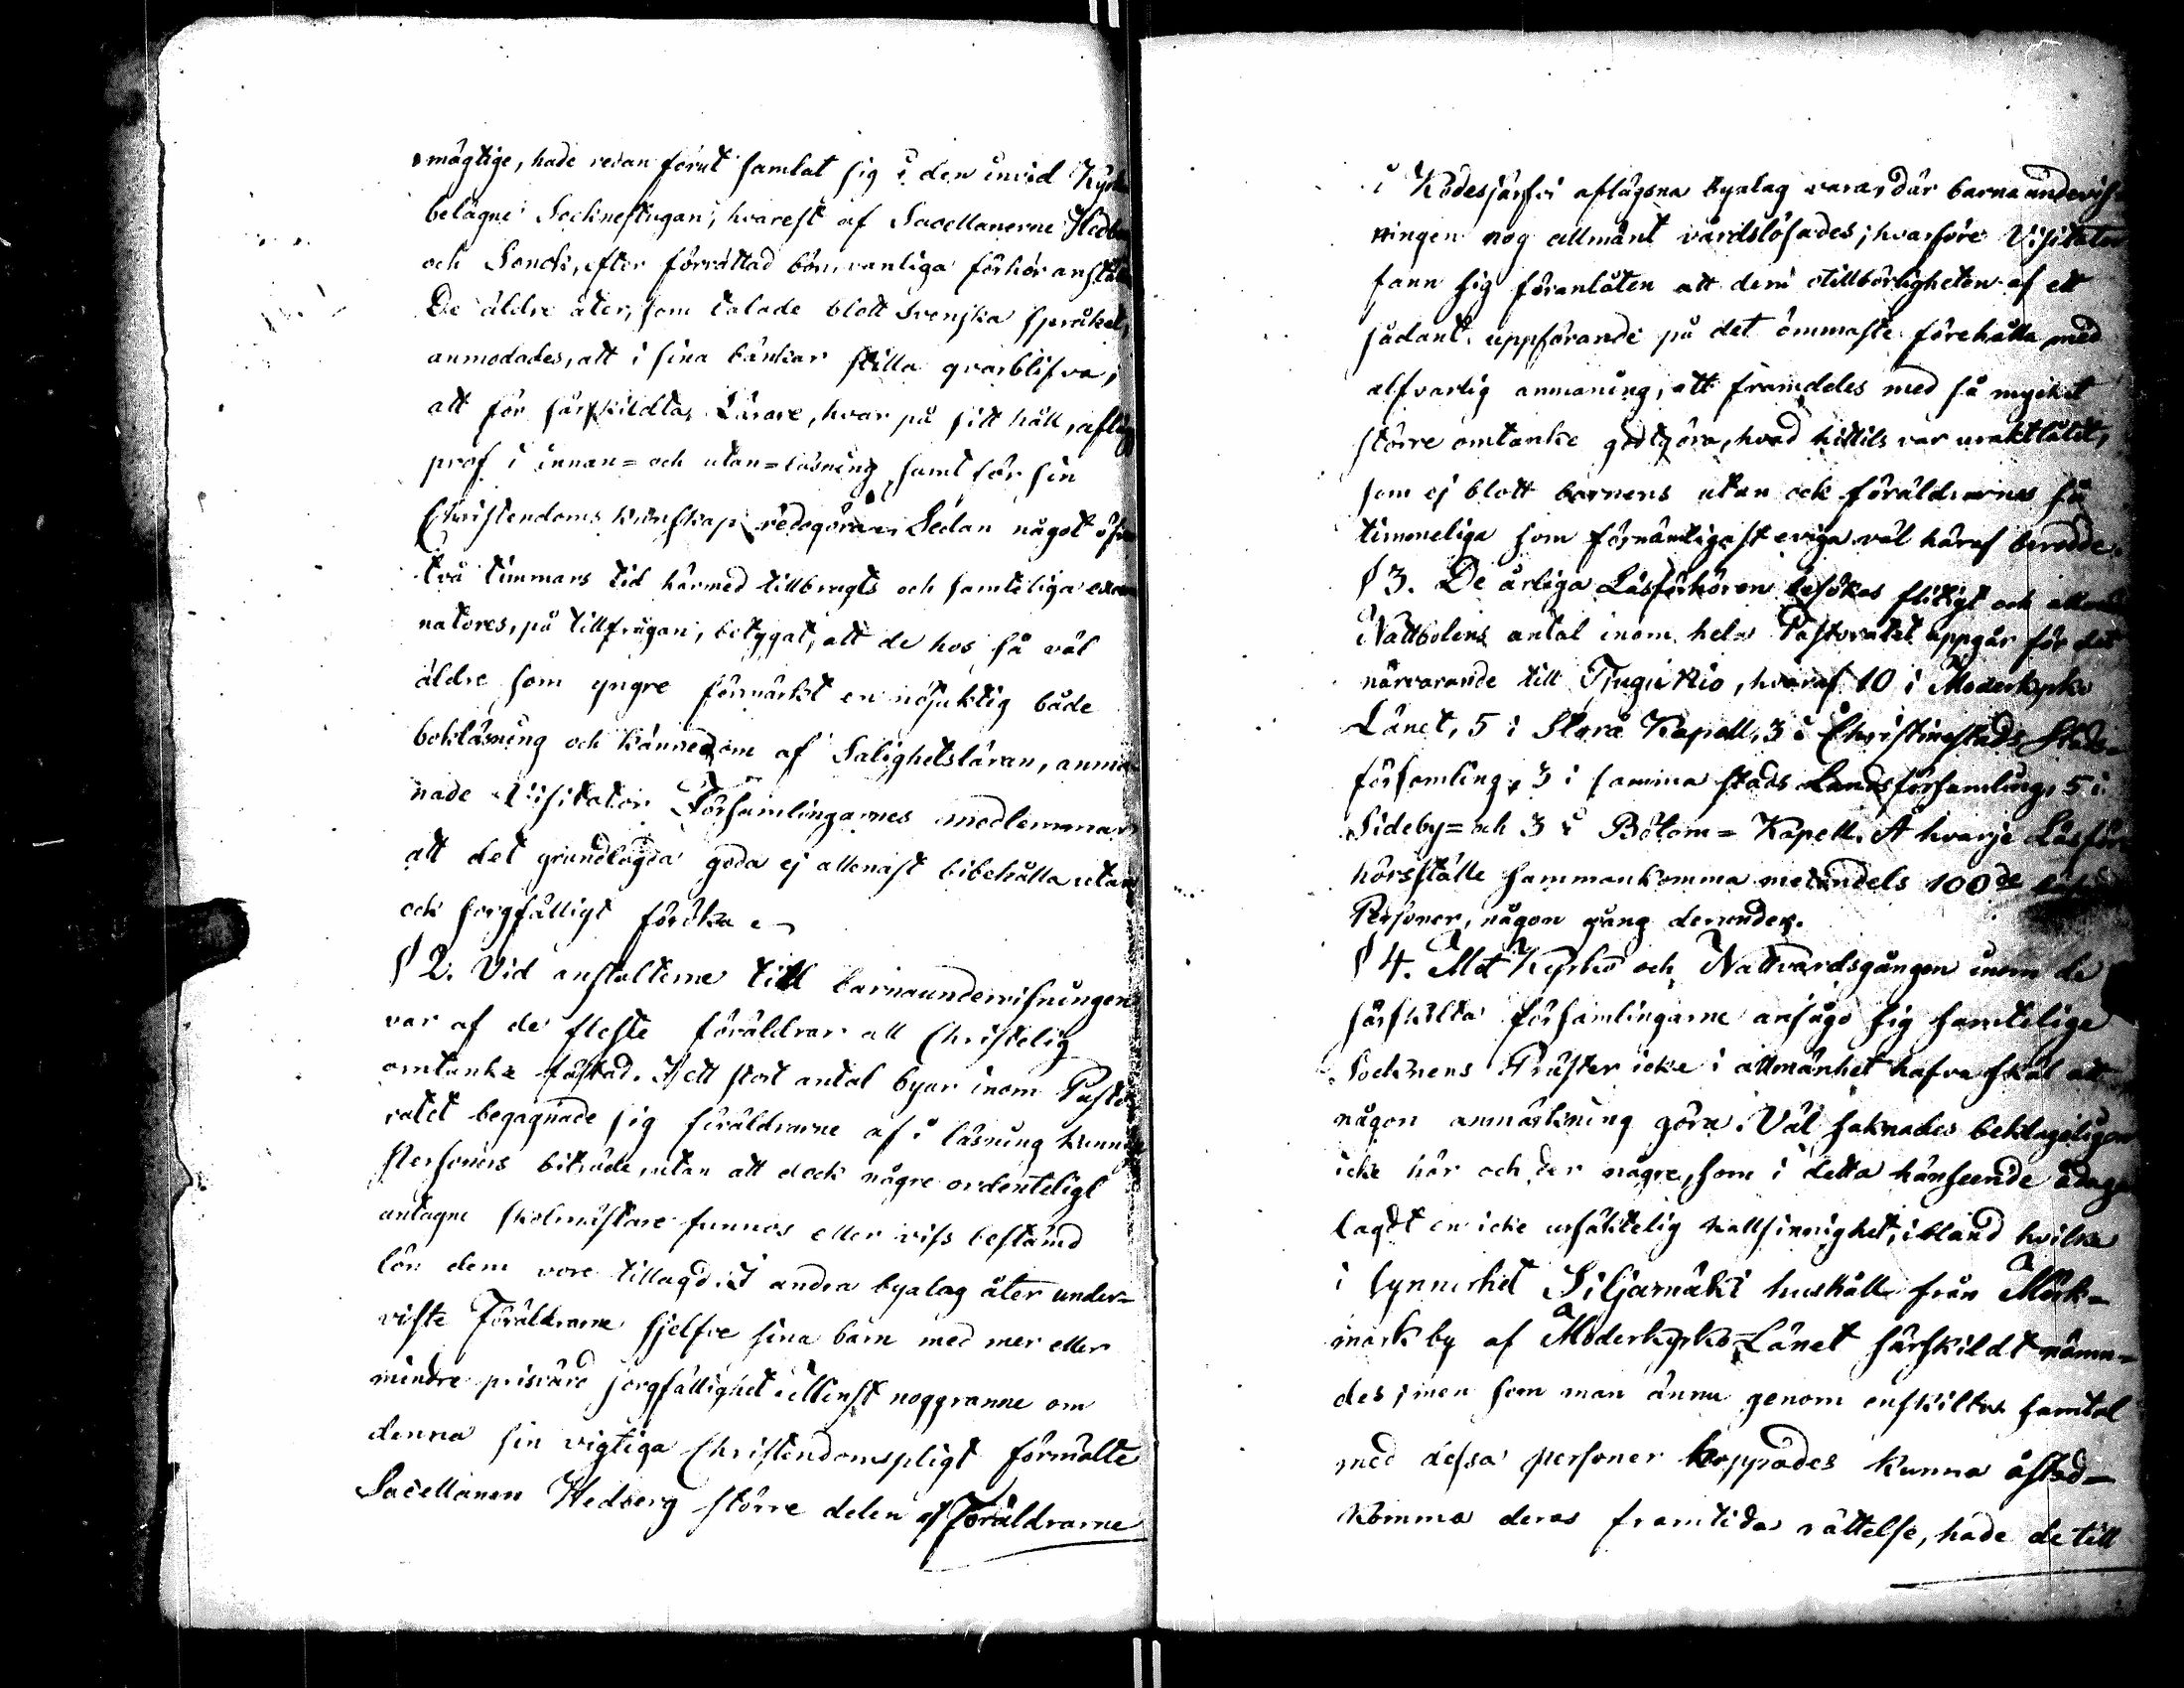 mägtige, hade redan förut samlat sig i den invid Kyrk
belägne Socknestugan, hvarest af Sacellanerne Hedb
och Sonck, efter förrättad bön, vanliga förhör anstäl
De äldre åter, som talade blott Svenska språket,
anmodades, att i sina bänkar stilla qvarblifva,
att för särskildta Lärare, hvar på sitt håll, aflägg
prof i innan= och utan=läsning, samt för sin
Christendoms kunskap redogöra. Sedan något öfver
två timmars tid härmed tillbragts och samteliga exami
natores, på tillfrågan, betygat, att de hos så väl
äldre som yngre förmärkt en nöjaktig både
bokläsning och kännedom af Salighetsläran, anma-
nade Visitator Församlingarnes medlemmar
att det grundlagda goda ej allenast bibehålla utan
ock sorgfälligt föröka.
§ 2. Vid anstalterne till barnaundervisningen
var af de fleste föräldrar all Christelig
omtanke fästad. I ett stort antal byar inom Pasto-
ratet begagnade sig föräldrarne af i läsning kunnige
Personers biträde, utan att dock någre ordenteligt
antagne skolmästare funnos eller viss bestämd
lön dem vore tillagd. I andra byalag åter under-
viste Föräldrarne sjelfve sina barn med mer eller
mindre prisvärd sorgfällighet. Minst noggranne om
denna sin vigtiga Christendomspligt förmälte
Sacellanen Hedberg större delen af Föräldrarne
i Kodesjärfvi aflägsna byalag vara, där barnaundervis-
ningen nog allmänt vårdslösades; hvarföre Visitator
fann sig föranlåten att dem otillbörligheten af ett
sådant uppförande på det ömmaste förehålla med
alfvarlig anmaning, att framdeles med så mycket
större omtanke godtgöra, hvad hittils var uraktlåtet,
som ej blott barnens utan ock föräldrarnes så
timmeliga som förnämligast eviga väl häraf berodde.
§ 3. De årliga Läsförhören besökas flitigt och allmänt
Nattbolens antal inom hela Pastoratet uppgår för det
närvarande till Tjugu Nio, hvaraf 10 i Moderkyrko
Länet, 5 i Storå Kapell, 3 i Christinestads Stads-
församling, 3 i samma stads Landsförsamling, 5 i
Sideby= och 3 i Bötom= Kapell. Å hvarje Läsför-
hörsställe sammankomma medendels 100de
Personer, någon gång derunder.
§ 4. Mot Kyrko och Nattvardsgången inom de
särskilta församlingarne ansågo sig samtelige
Socknens Präster icke i allmänhet hafva skäl att
någon anmärkning göra. Väl saknades beklageligen
icke här och der någre, som i detta hänseende ådaga
lagdt en icke ursäktelig kallsinnighet, ibland hvilka
i synnerhet Siljamäki hushåll från Mörk-
mark by af Moderkyrko-Länet särskildt nämn-
des; men som man ännu genom enskilta samtal
med dessa personer hoppades kunna åstad-
komma deras framtida rättelse, hade de till